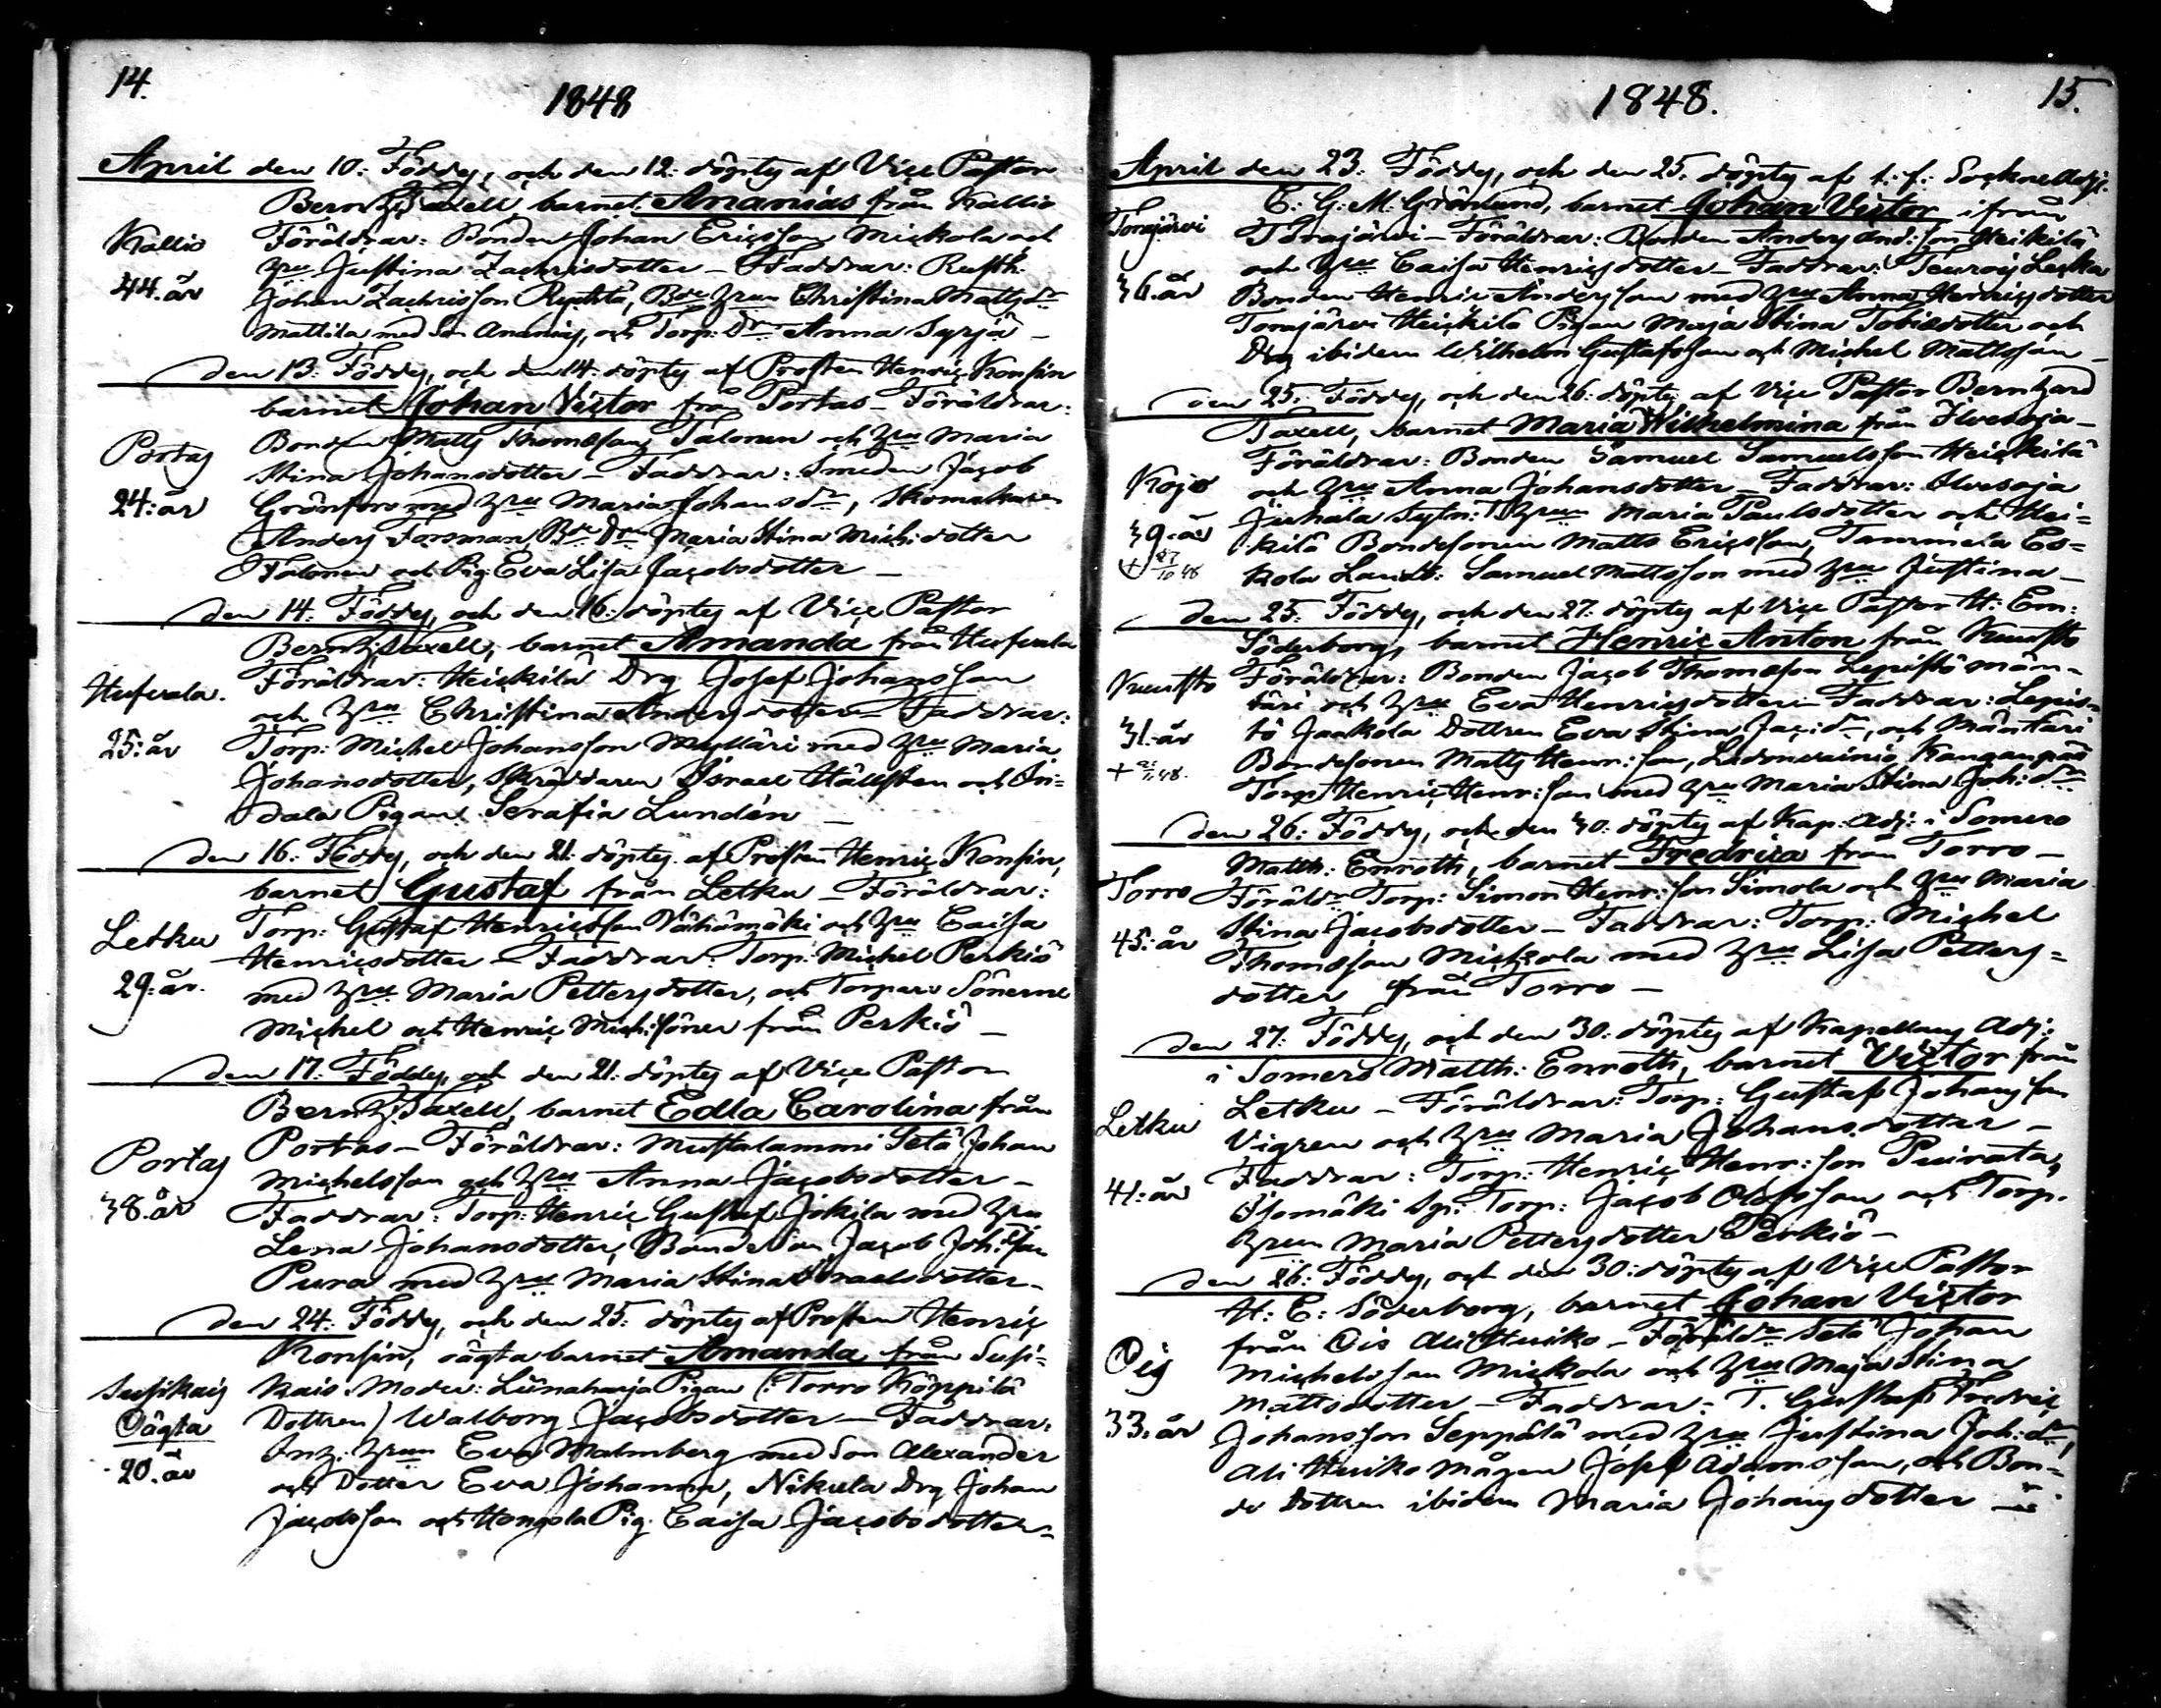 14.
1848
April den 10: Föddes, och den 12: döptes af Vice Pastor
Bernh: Taxell, barnet Ananias från Kallio
Kallio
Föräldrar: Bonden Johan Ericsson Mickola och
Hru Justina Zachrisdotter — Faddrar: Rusth:
44. år
Johan Zachrisson Ryhtä, Bde Hrun Christina Mattsdr
Mattila med Son Ananias, och Torp: Dr Anna Syrjä —
den 13: Föddes, och den 14: döptes af Prosten Henric Konsin
barnet Johan Victor från Portas — Föräldrar:
Bonden Matts Thomasson Talonen och Hru Maria
Portas
Stina Johansdotter — Faddrar: Smeden Jacob
24: år
Grönfors med Hru Maria Johansdr, Skomakaren
Anders Forsman, Bde Drn Maria Stina Mich: dotter
Talonen och Pig: Eva Lisa Jacobsdotter —
den 14: Föddes, och den 16: döptes af Vice Pastor
Bernh: Taxell, barnet Amanda från
Föräldrar: Heickilä Drg Josef Johansson
och Hru Christina Andersdotter — Faddrar:
25: år
Torp: Michel Johansson Mylläri med Hru Maria
Johansdotter, Skräddaren Israel Hällsten och In=
dala Pigan Serafia Lundén —
den 16: Föddes, och den 21: döptes af Prosten Henric Konsin,
barnet Gustaf från Letku — Föräldrar:
Letku
Torp: Gustaf Henricsson Vähämäki och Hru Caisa
Henricsdotter — Faddrar: Torp: Michel Perkiö
29: år.
med Hru Maria Pettersdotter, och Torpare Sönerne
Michel och Henric Mich: söner från Perkiö —
den 17: Föddes, och den 21: döptes af Vice Pastor
Bernh: Taxell, barnet Edla Carolina från
Portas
Portas — Föräldrar: Mustalammi Setä Johan
Michelsson och Hru Anna Jacobsdotter —
38. år
Faddrar: Torp: Henric Gustaf Jokila med Hru
Lena Johansdotter, Bonde Son Jacob Joh: son
Pura med Hru Maria Stina Israelsdotter —
den 24: Föddes, och den 25: döptes af Prosten Henric
Konsin, oägta barnet Amanda från Susi=
Susikais
kais. Moder: Liinaharja Pigan (: Torro Köppilä
Oägta
Dottren) Walborg Jacobsdotter — Faddrar:
20. år
Inh: Hrun Eva Malmberg med Son Alexander
och Dotter Eva Johanna, Nikula Drg Johan
Jacobsson och Hongola Pig. Caisa Jacobsdotter —
1848.
15.
April den 23. Föddes, och den 25. döptes af t: f: Sockneadj:
E: G: M: Grönlund, barnet Johan Victor ifrån
Torajärvi
Torajärvi — Föräldrar: Bonden Anders And: son Heikilä
och Hru Caisa Henricsdotter — Faddrar: Teurois
36. år
Bonden Henric Andersson med Hru Anna Henricsdotter
Torajärvi Heickilä Pigan Maja Stina Tobiasdotter och
Drg ibidem Wilhelm Gustafsson och Michel Mattsson —
den 25: Föddes, och den 26: döptes af Vice Pastor Bernhard
Taxell, barnet Maria Wilhelmina från Ilvesoja —
Föräldrar: Bonden Samuel Samuelsson Heickilä
Kojo
och Hru Anna Johansdotter — Faddrar: Ilvesoja
39: år
Jirhala Sytn: Hrun Maria Paulsdotter och Hei=
kilä Bondesonen Matts Ericsson, Tammela Es=
kola Landb: Samuel Mattsson med Hru Justina —
den 25: Föddes, och den 27: döptes af Vice Pastor H: Em:
Söderborg, barnet Henric Anton från Kuusto
Kuusto
Föräldrar: Bonden Jacob Thomasson Lepistö män=
täri och Hru Eva Henricsdotter — Faddrar: Lepis=
31. år
tö Jaakola Dottren Eva Stina Jac: dr, och Mäntäri
Bondesonen Matts Henr: son, Ladonvainio, Kanganpää
Torp: Henric Henr: son med Hru Maria Stina Joh: dr
den 26: Föddes, och den 30: döptes af Kap: Adj: i Somero
Matth: Enroth, barnet Fredrica från Torro —
Torro
Föräldr: Torp: Simon Henr: son Simola och Hru Maria
Stina Jacobsdotter — Faddrar: Torp: Michel
45: år
Thomasson Mickola med Hru Lisa Petters=
dotter från Torro —
den 27: Föddes, och den 30: döptes af Kapellans Adj:
i Somero Matth: Enroth, barnet Victor från
Letku
Letku — Föräldrar: Torp: Gustaf Johansson
Vigren och Hru Maria Johansdotter —
41: år
Faddrar: Torp: Henric Henr: son Puirata,
Isomäki Sp: Torp: Jacob Olofsson och Torp.
Hrun Maria Pettersdotter Perkiö —
den 26: Föddes, och den 30: döptes af Vice Pastor
H: E: Söderborg, barnet Johan Victor
Ojs
från Ojs Ali Huiko — Föräldr: Setä Johan
Michelsson Mickola och Hru Maja Stina
Mattsdotter — Faddrar: T. Gustaf Fredric
33. år
Johansson Seppälä med Hru Justina Joh: dr,
Ali Huiko mågen Josef Adamsson, och Bon=
de Dottren ibidem Maria Johansdotter —